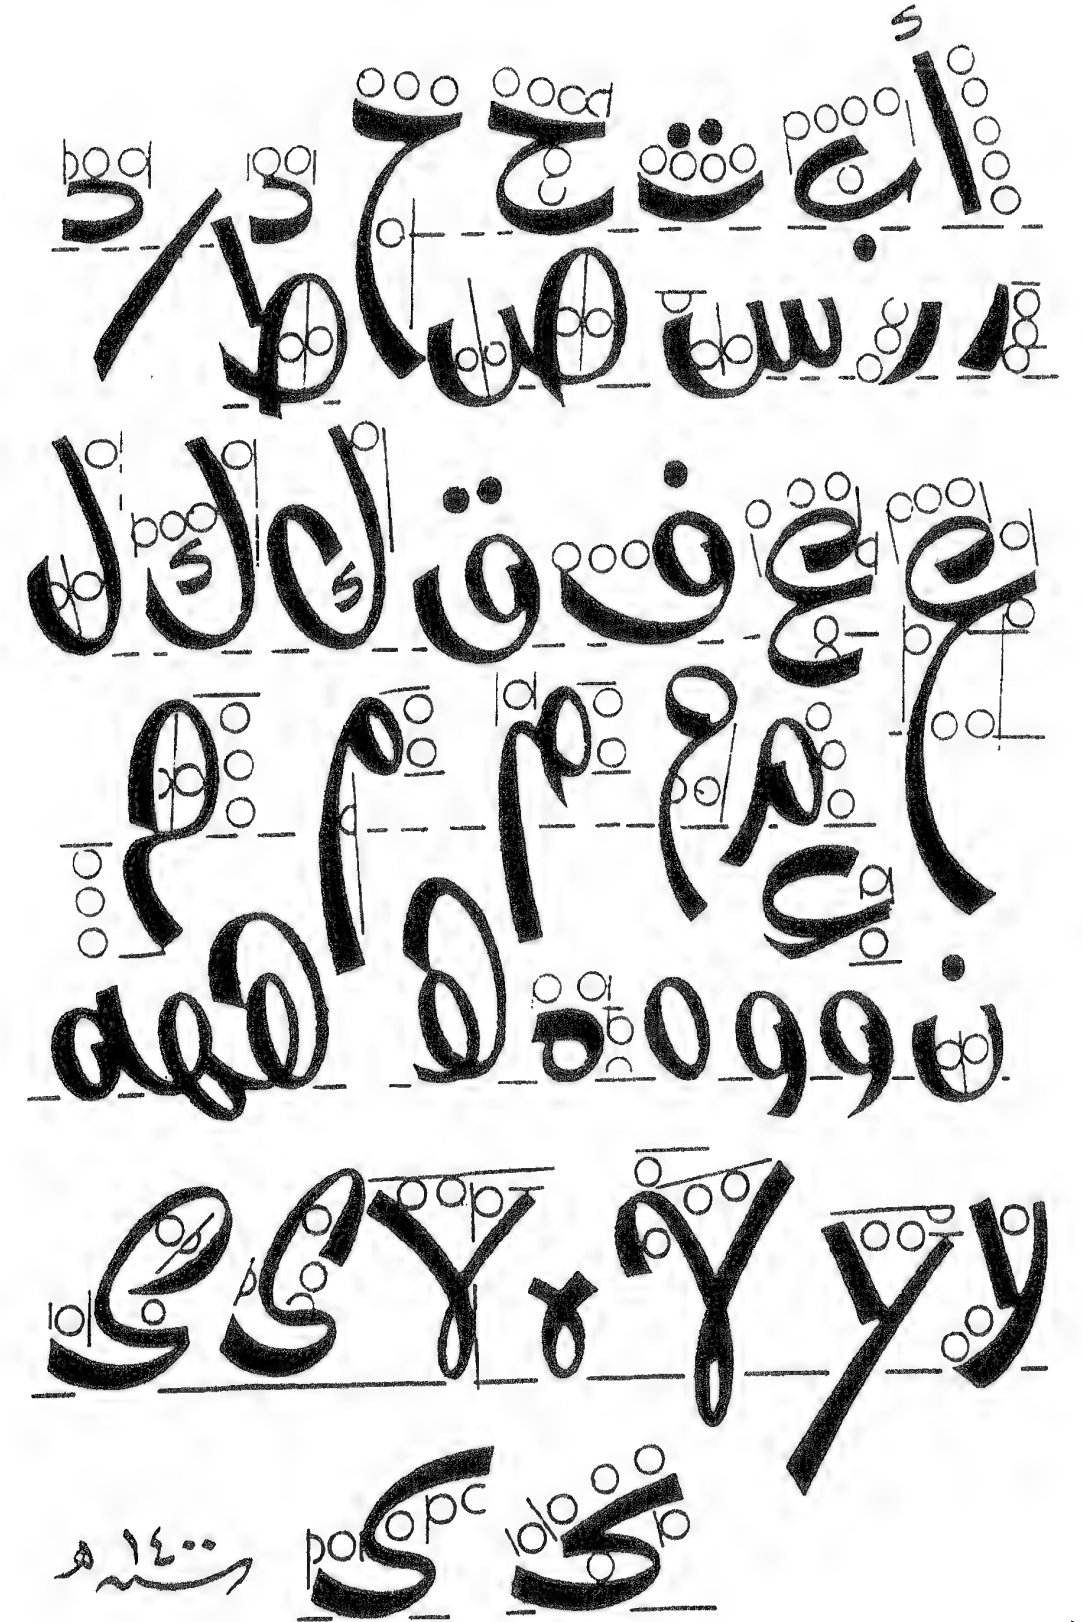 أ ب ت ح ح د د
ر ر س ص ط
ع ع ف ق ك ك ل
ع م م م م
ن و و ه ه ه ههه
لا لا لا لا لا ی ی
ی ی
سنة ١٤٠٠ هـ